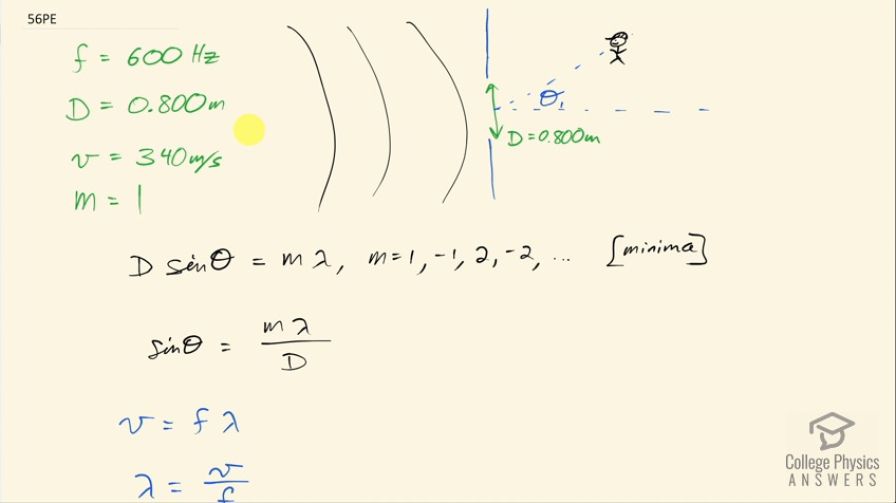 56PE
f = 600 Hz
D = 0.800m
v = 340m/s
m = 1
θ₁
D = 0.800m
D sinθ = m λ, m=1, -1, 2, -2, ... [minima]
sinθ = mλ/D
v = f λ
λ = v/f
College Physics
ANSWERS